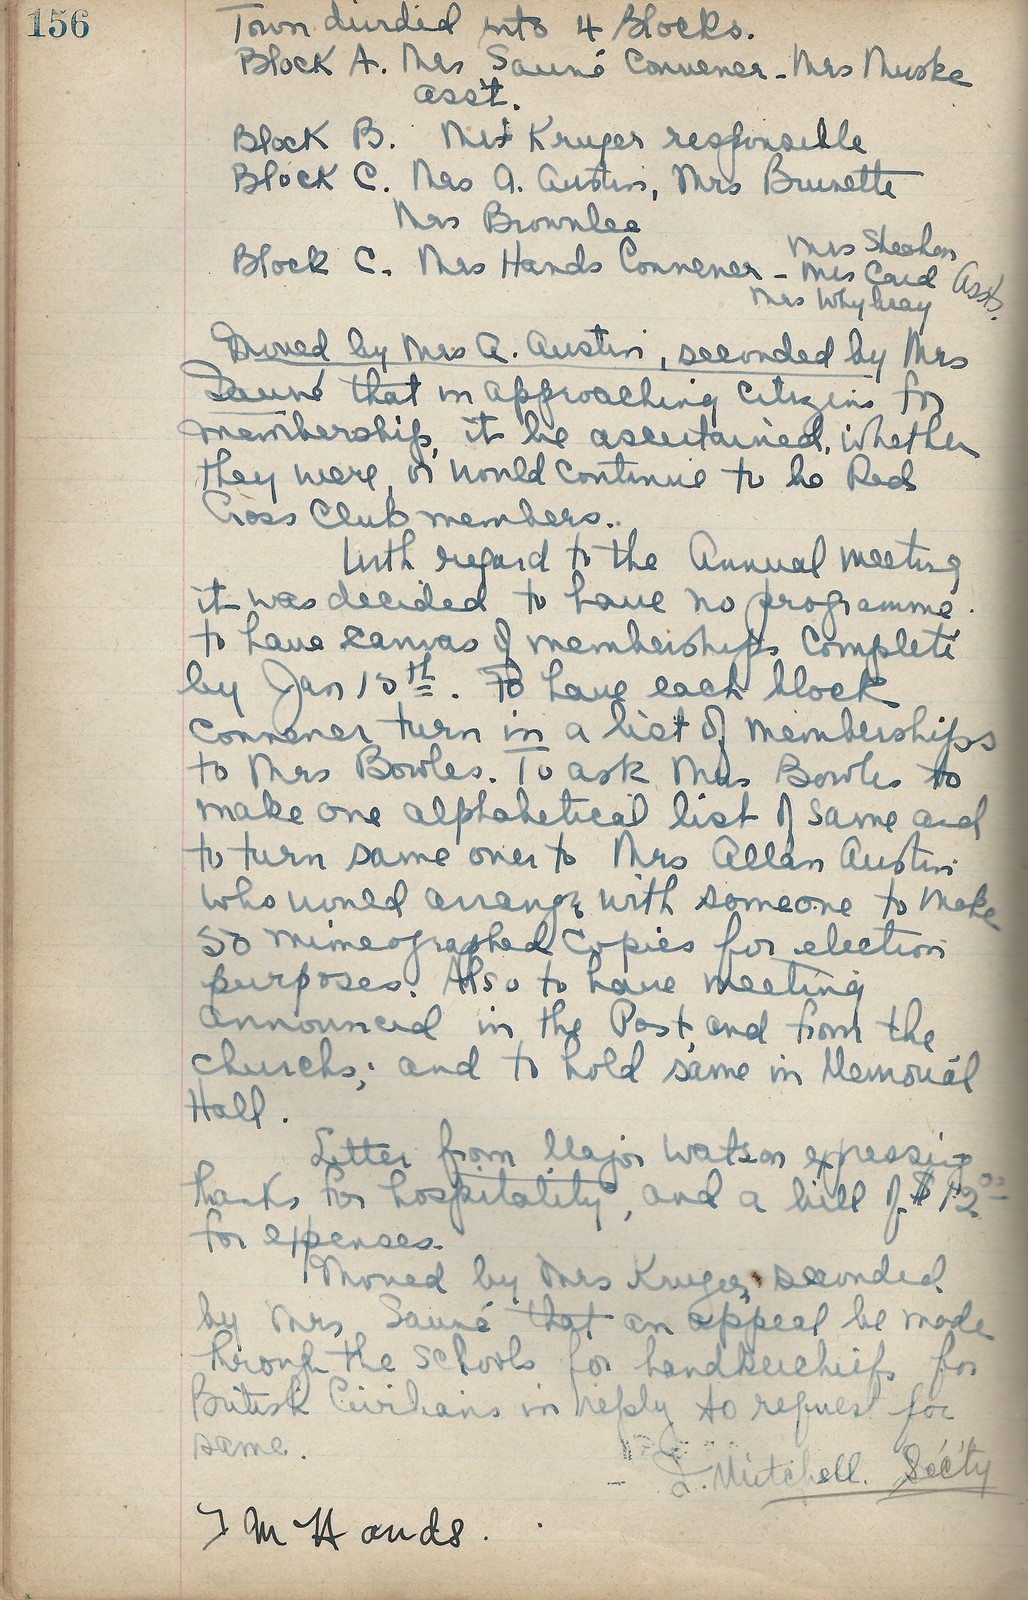 156
Town divided into 4 Blocks.
Block A. Mrs Sauné Convener - Mrs Muske
asst.
Block B. Mrs Kruger responsible
Block C. Mrs A. Austin, Mrs Brunette
Mrs Brownlee
Mrs Sheehan
Block C. Mrs Hands Convener - Mrs Caid Assts.
Mrs Whybray
Moved by Mrs A. Austin, seconded by Mrs
Sauné that in approaching citizens for
membership, it be ascertained, whether
they were, or would continue to be Red
Cross Club members.
With regard to the Annual meeting
it was decided to have no programme.
to have canvas of memberships complete
by Jan 15th. To have each block
convener turn in a list of memberships
to Mrs Bowles. To ask Mrs Bowles to
make one alphabetical list of same and
to turn same over to Mrs Allan Austin
who would arrange with someone to make
50 mimeographed copies for election
purposes. Also to have meeting
announced in the Post, and from the
churchs; and to hold same in Memorial
Hall.
Letter from Major Watson expressing
thanks for hospitality, and a bill of $12.00
for expenses.
Moved by Mrs Kruger, seconded
by Mrs Sauné that an appeal be made
through the schools for handkerchiefs for
British Civilians in reply to request for
same.
Mitchell. Sec'ty
M Hands.